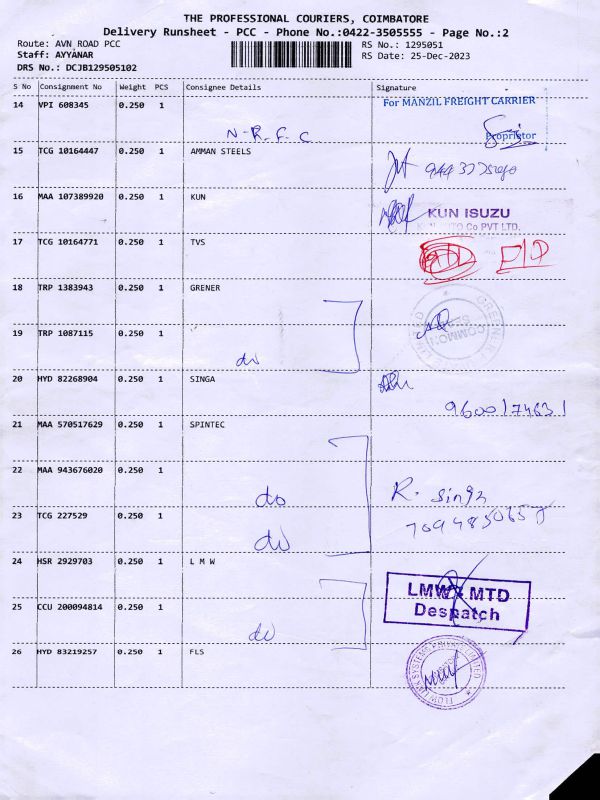 THE PROFESSIONAL COURIERS, COIMBATORE
Delivery Runsheet - PCC - Phone No.:0422-3505555 - Page No.:2
Route: AVN_ROAD PCC
RS No.: 1295051
Staff: AYYANAR
RS Date: 25-Dec-2023
DRS No.: DCJB129505102
S No Consignment No Weight PCS Consignee Details Signature
14 VPI 608345 0.250 1 For MANZIL FREIGHT CARRIER
N-R.F.C Proprietor
15 TCG 10164447 0.250 1 AMMAN STEELS
16 MAA 107389920 0.250 1 KUN
KUN ISUZU
Co PVT LTD.
17 TCG 10164771 0.250 1 TVS
18 TRP 1383943 0.250 1 GRENER
COMMON
19 TRP 1087115 0.250 1
do
20 HYD 82268904 0.250 1 SINGA
9600174631
21 MAA 570517629 0.250 1 SPINTEC
22 MAA 943676020 0.250 1
do R. Singh
23 TCG 227529 0.250 1
do
24 HSR 2929703 0.250 1 L M W
LMW MTD
Despatch
25 CCU 200094814 0.250 1
do
26 HYD 83219257 0.250 1 FLS